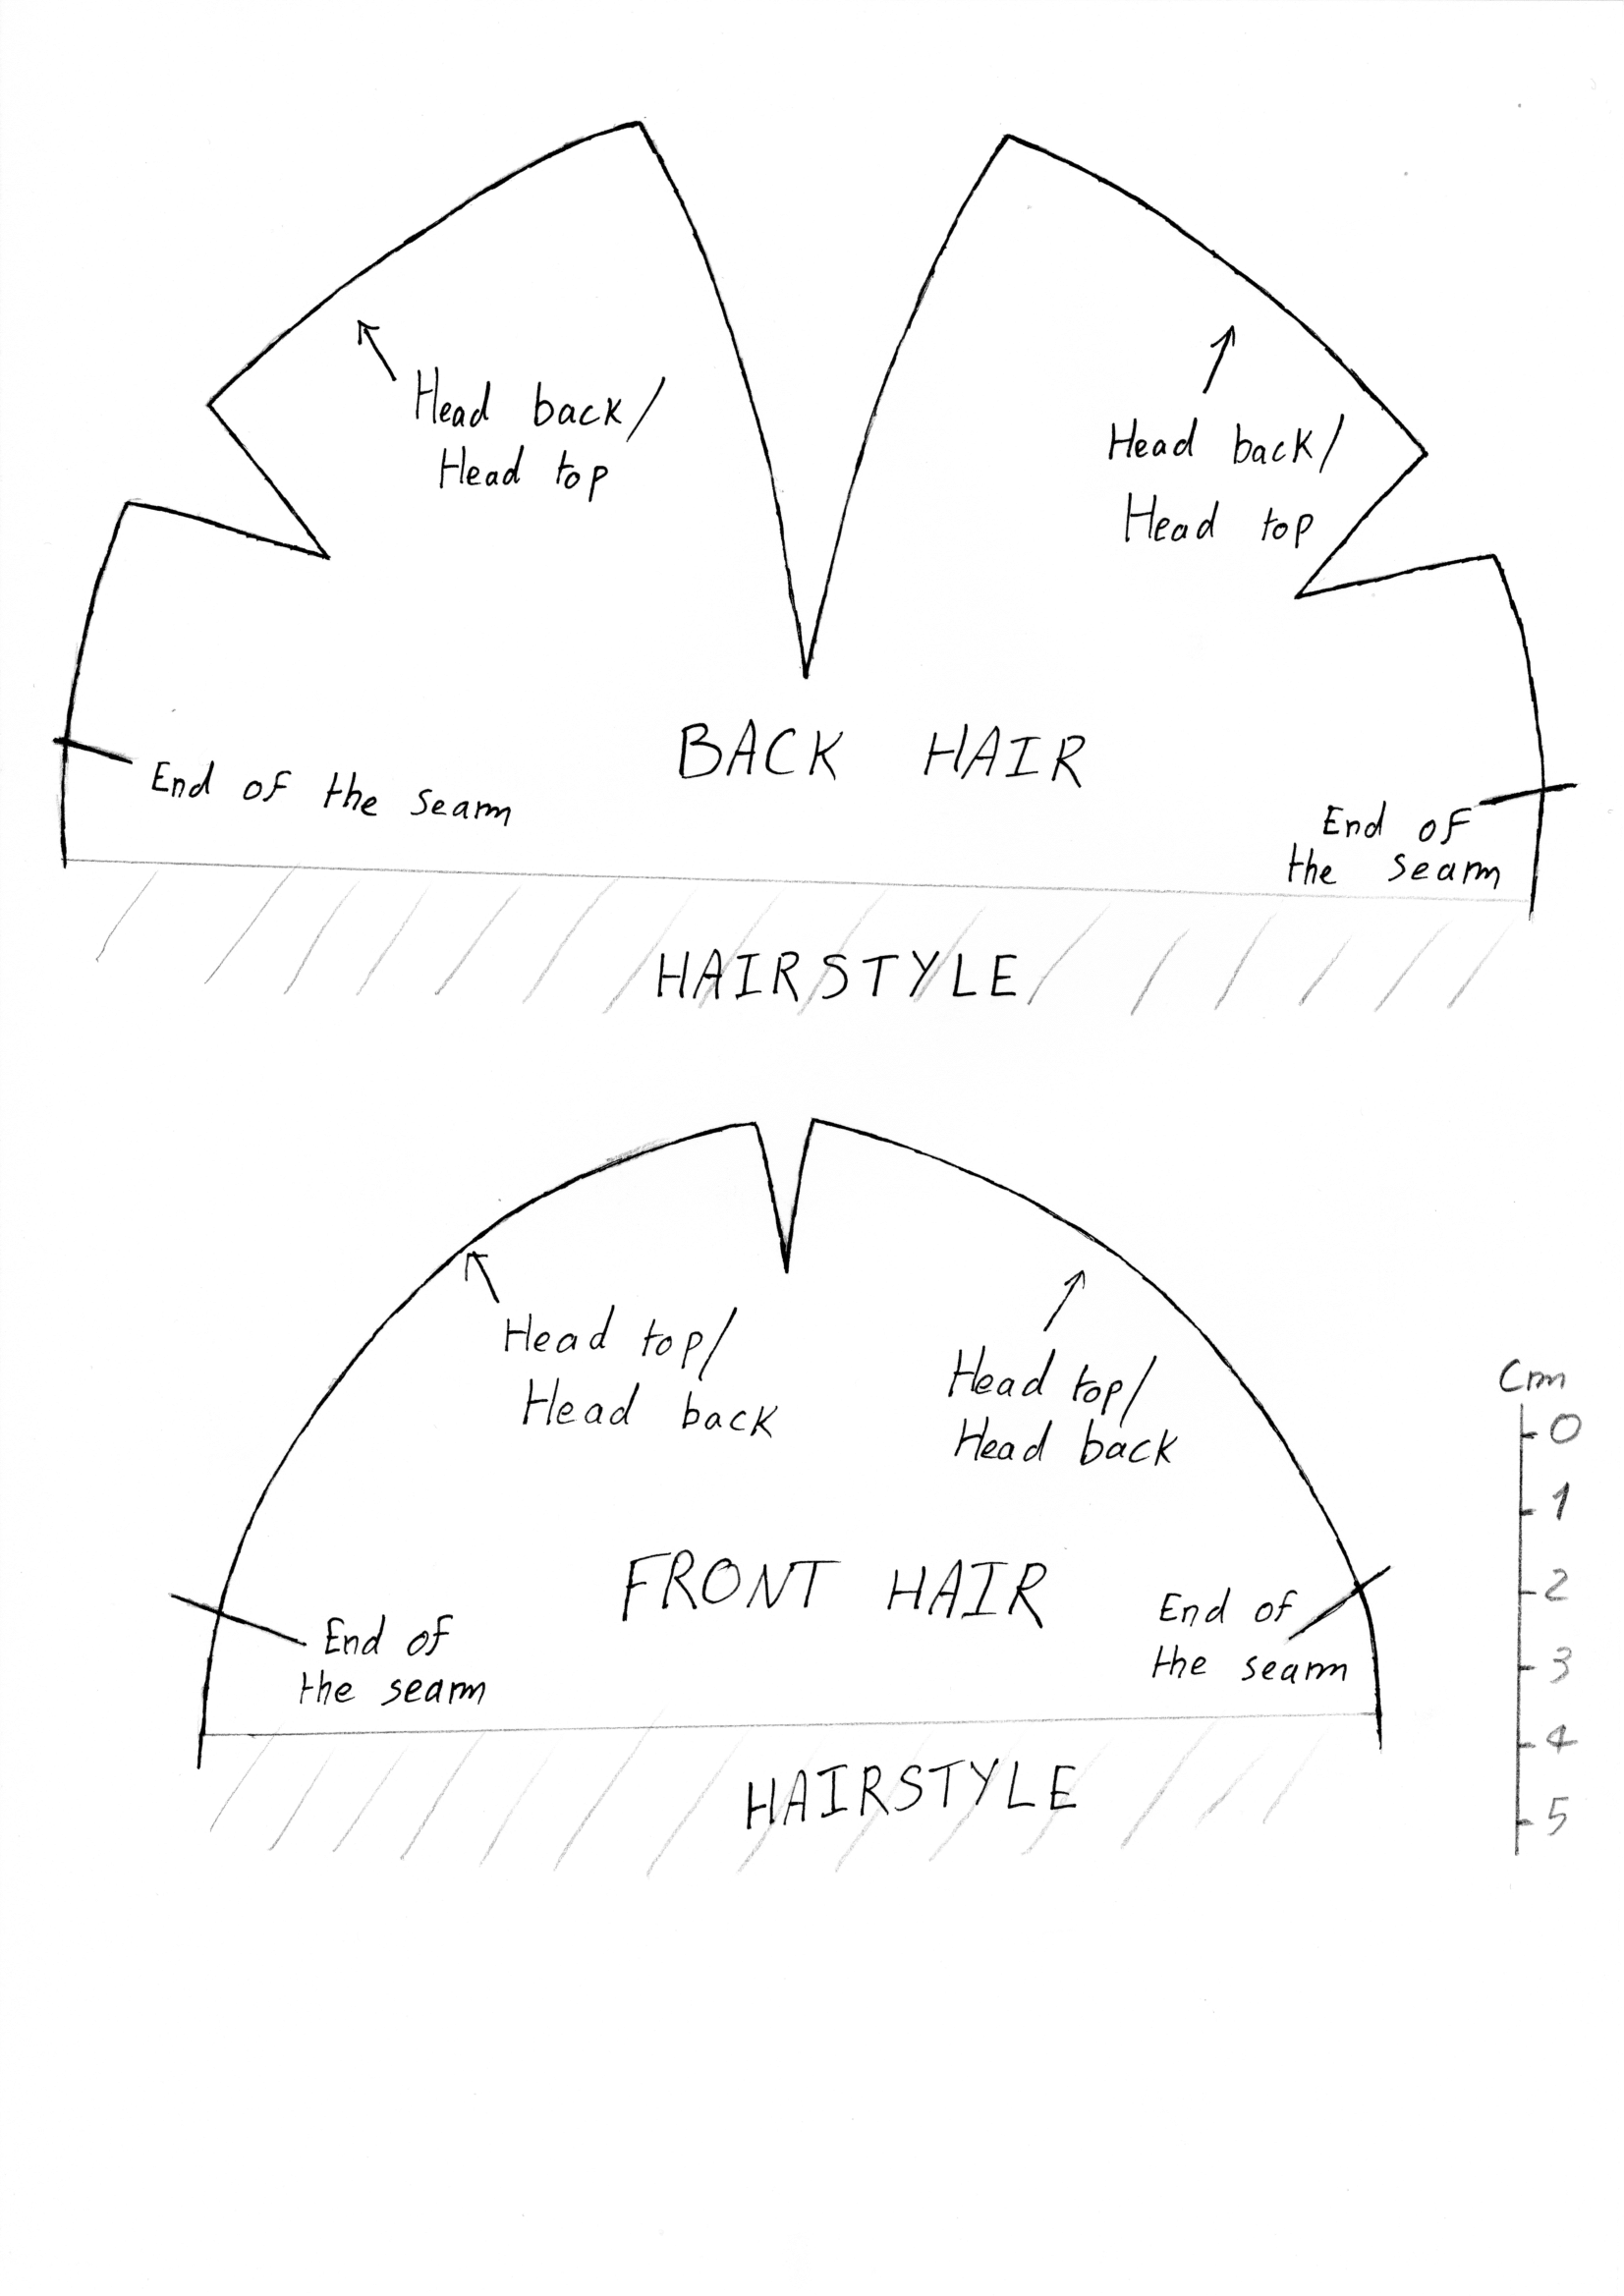 Head back/
Head top
Head back/
Head top
BACK HAIR
End of the seam
End of
the seam
HAIRSTYLE
Head top/
Head back
Head top/
Head back
FRONT HAIR
End of
the seam
End of
the seam
HAIRSTYLE
Cm
0
1
2
3
4
5